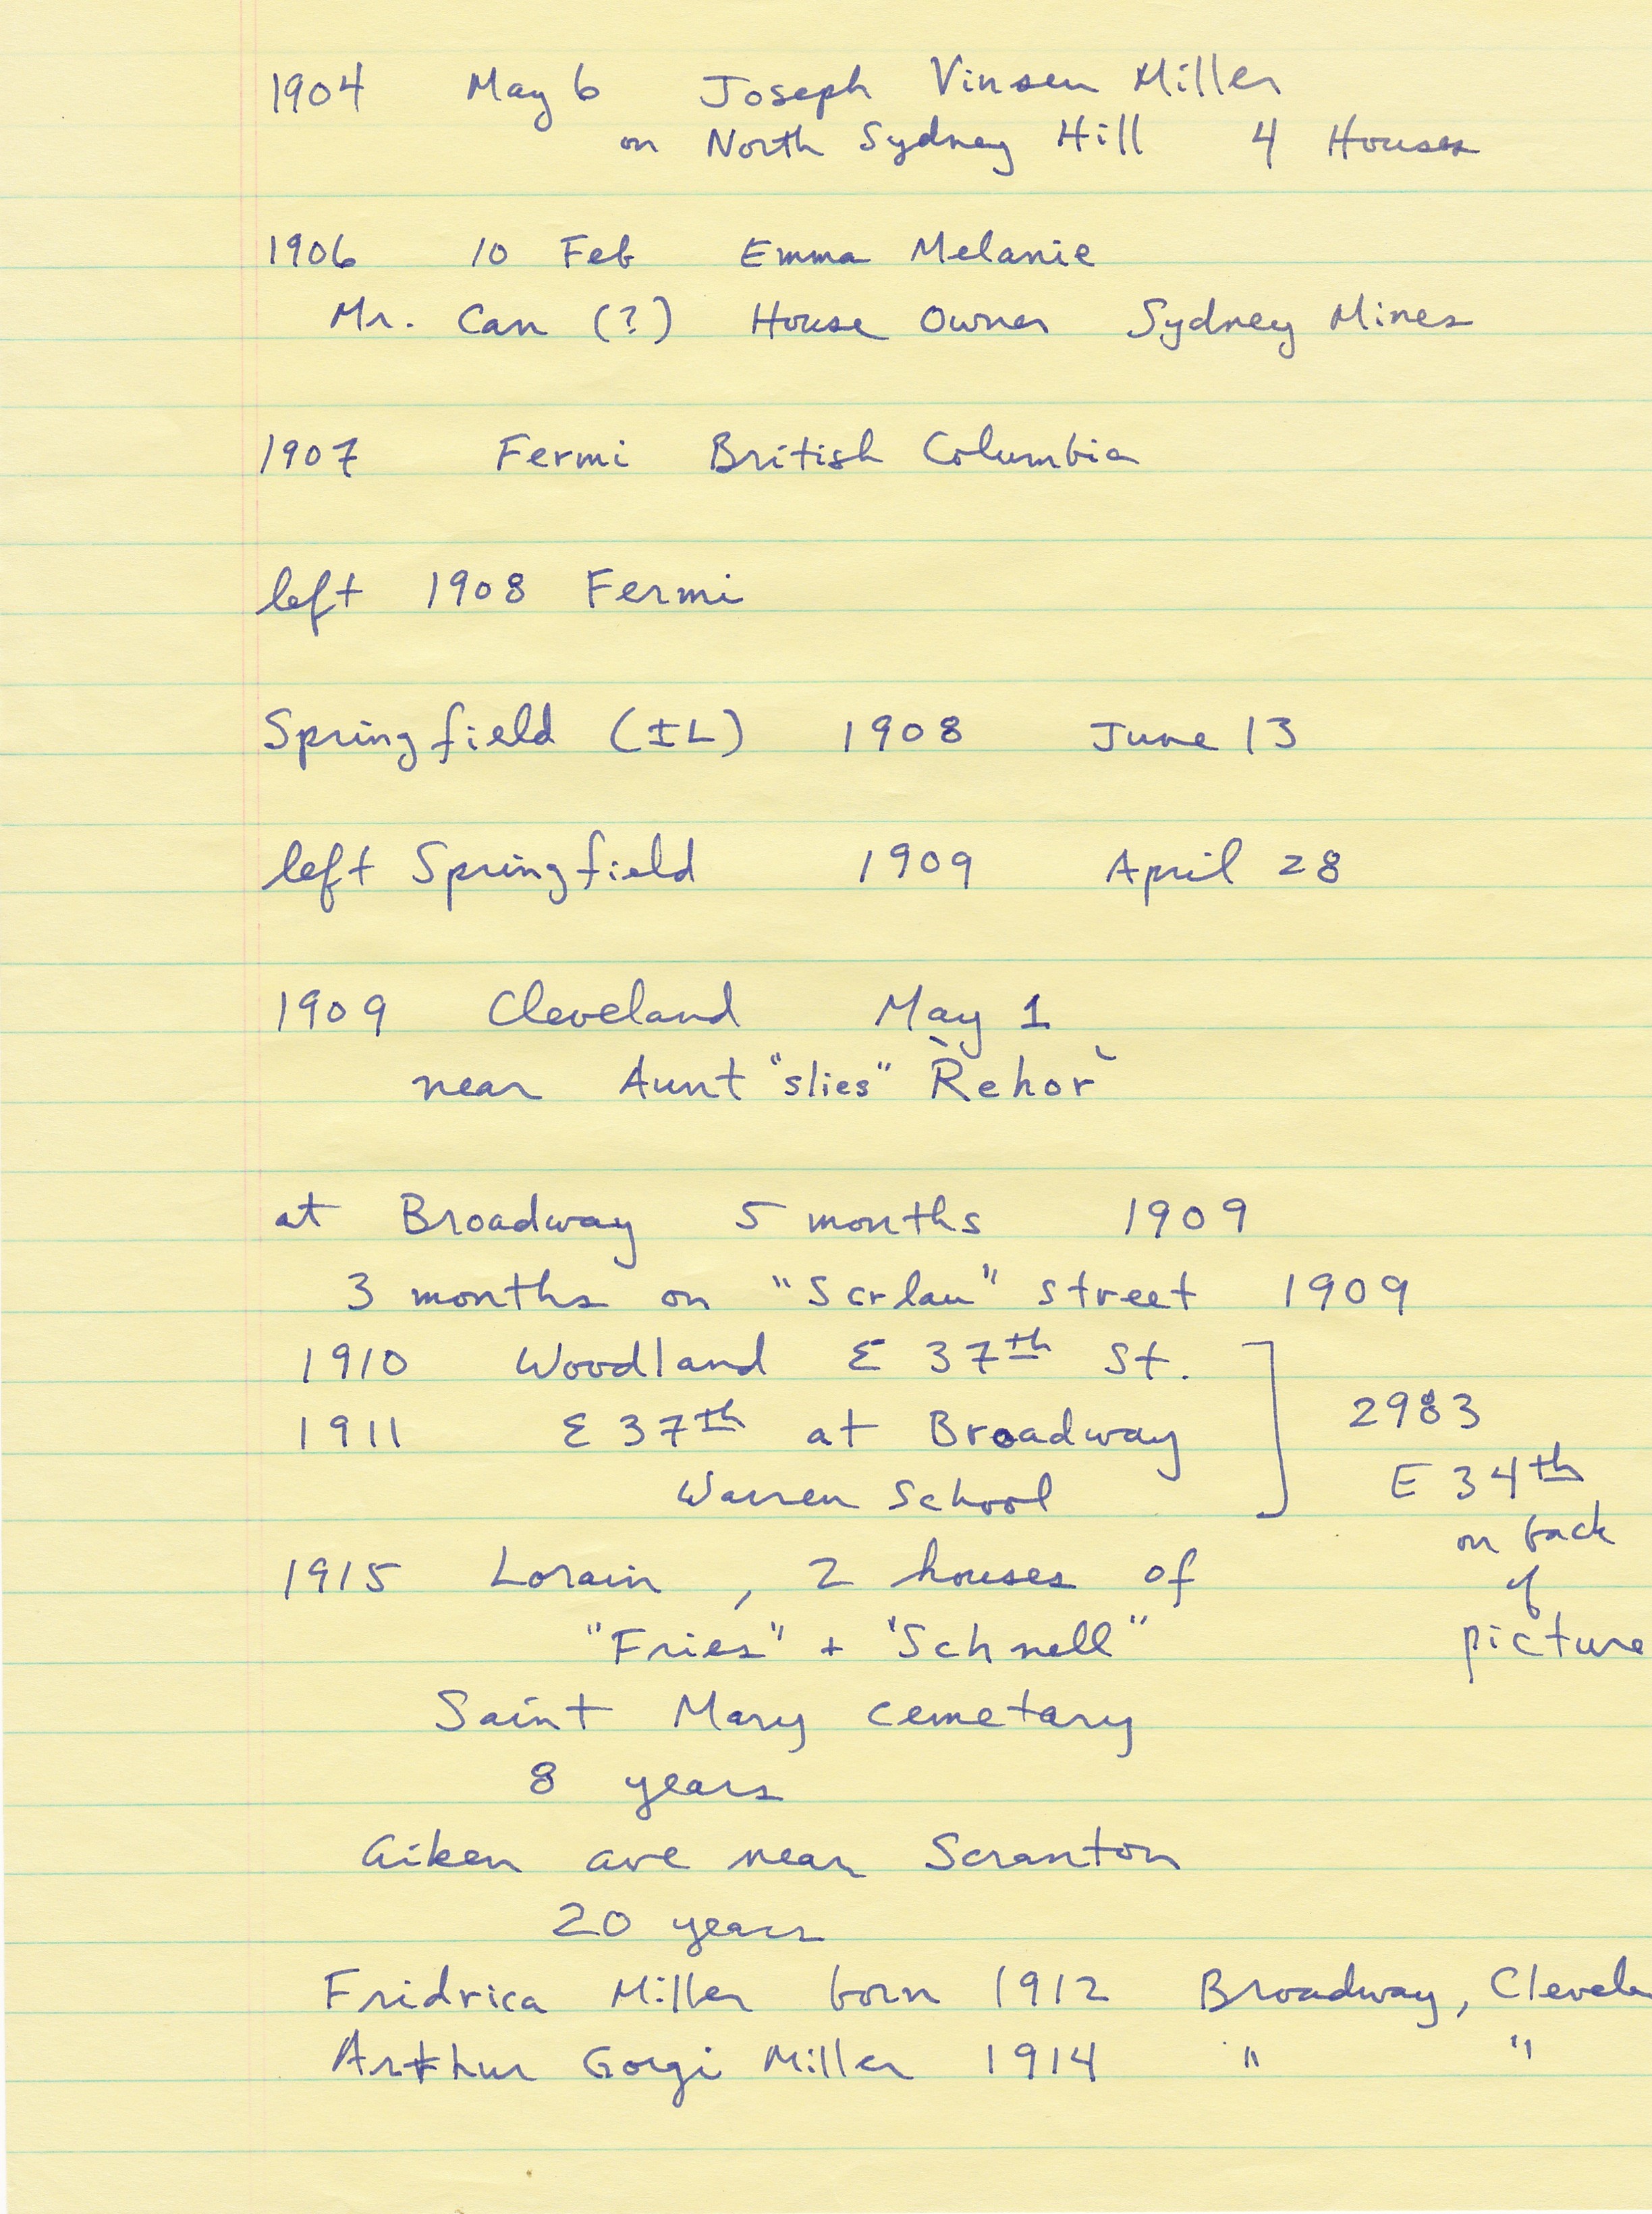 1904 May 6 Joseph Vinsen Miller
on North Sydney Hill 4 Houses
1906 10 Feb Emma Melanie
Mr. Can (?) House Owner Sydney Mines
1907 Fermi British Columbia
left 1908 Fermi
Springfield (IL) 1908 June 13
left Springfield 1909 April 28
1909 Cleveland May 1
near Aunt "slies" Rehor
at Broadway 5 months 1909
3 months on "Scrlau" street 1909
1910 Woodland E 37th St.
1911 E 37th at Broadway
Warren School
2983
E 34th
on back
of
picture
1915 Lorain, 2 houses of
"Fries" + "Schnell"
Saint Mary cemetary
8 years
Aiken ave near Scranton
20 years
Fridrica Miller born 1912 Broadway, Clevela
Arthur Gorgi Miller 1914 " "